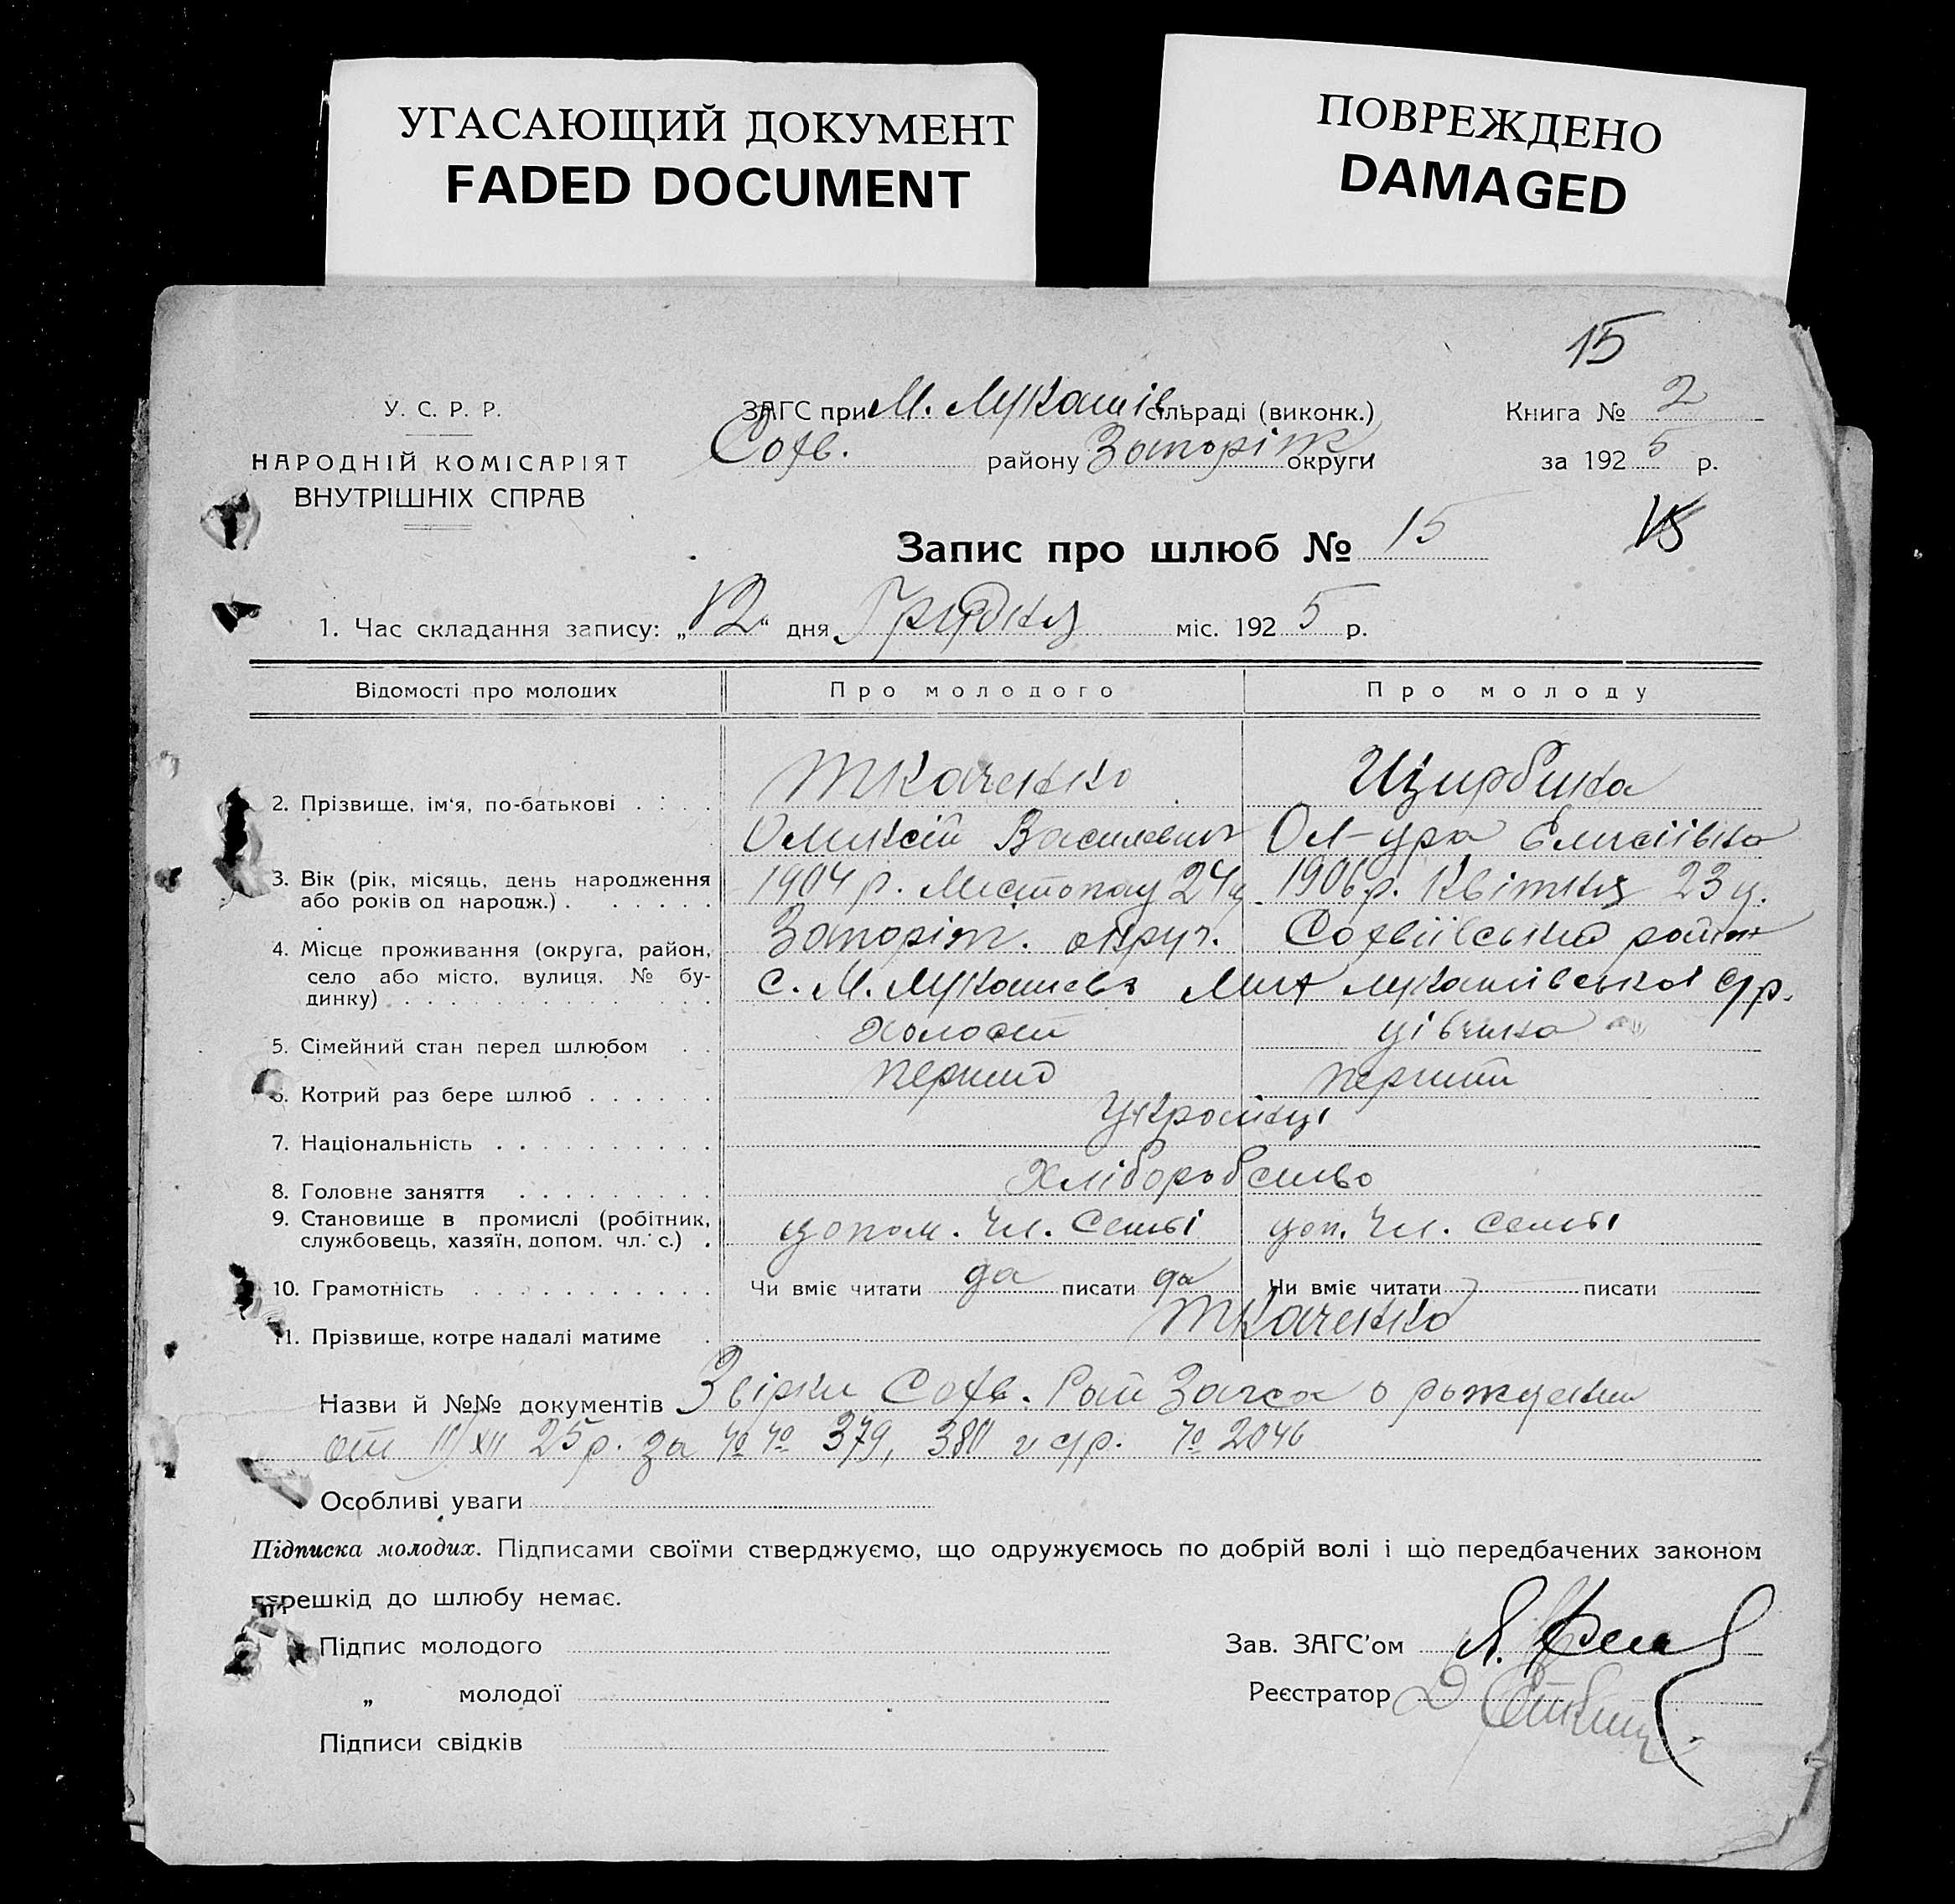 УГАСАЮЩИЙ ДОКУМЕНТ
FADED DOCUMENT
ПОВРЕЖДЕНО
DAMAGED
15
У. С. Р. Р.
НАРОДНІЙ КОМІСАРІЯТ
ВНУТРІШНІХ СПРАВ
ЗАГС при М. Лукашів сільраді (виконк.)
Софв. району Запоріж округи
Книга № 2
за 1925 р.
Запис про шлюб № 15
15
1. Час складання запису: „12“ дня Грудня міс. 1925 р.
Відомості про молодих Про молодого Про молоду
2. Прізвище, ім‘я, по-батькові . . . Ткаченко Щирбина
Оликсій Василевич Ол-дра Елисіівна
3. Вік (рік, місяць, день народження
або років од народж.) . . . . . . 1904 р. Листопад 24д. 1906 р. Квітня 23 д.
4. Місце проживання (округа, район, Запоріж. округ. Софвіівський район
село або місто, вулиця, № бу-
динку) . . . . . . . . . . . . . с. М. Лукашева Мил лукашівської с/р.
5. Сімейний стан перед шлюбом . . холост дівчина
6. Котрий раз бере шлюб . . . . . . перший перший
7. Національність . . . . . . . . . . Українці
8. Головне заняття . . . . . . . . . Хліборобство
9. Становище в промислі (робітник,
службовець, хазяїн, допом. чл. с.) . допом. чл. семьі доп. чл. семьі
10. Грамотність . . . . . . . . . . . . Чи вміє читати да писати да Чи вміє читати писати
11. Прізвище, котре надалі матиме . Ткаченко
Назви й №№ документів Звірки Софв. Рай Загса о рождении
от 11/XII 25 р. за №№ 379, 380 и с/р. № 2046
Особливі уваги
Підписка молодих. Підписами своїми стверджуємо, що одружуємось по добрій волі і що передбачених законом
перешкід до шлюбу немає.
Підпис молодого
„ молодої
Підписи свідків
Зав. ЗАГС’ом
Реєстратор